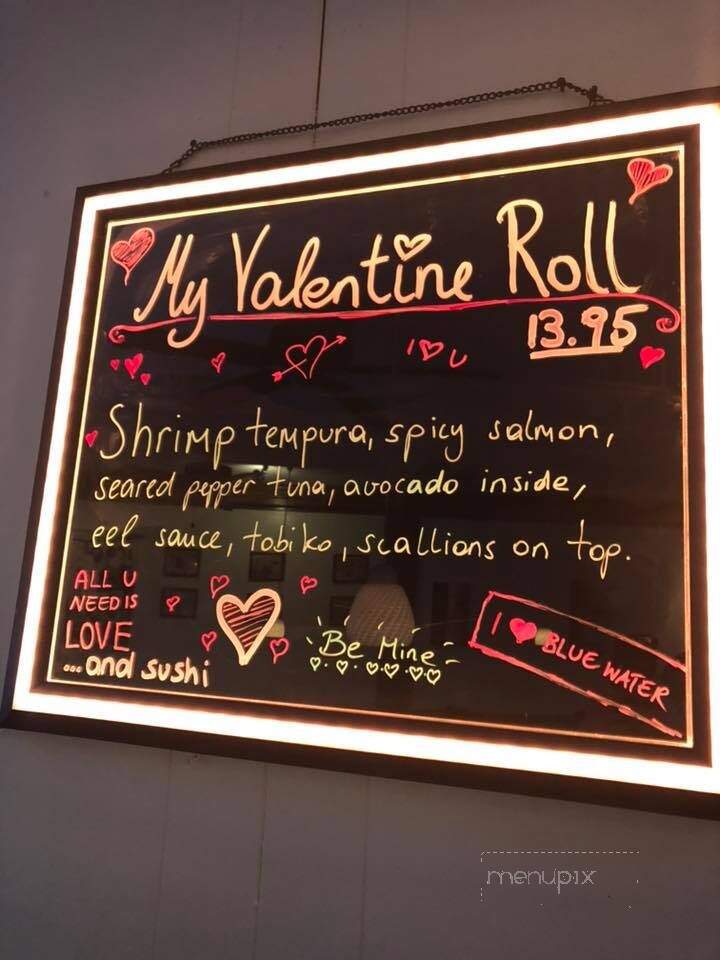 My Valentine Roll
13.95
I ♡ U
Shrimp tempura, spicy salmon,
seared pepper tuna, avocado inside,
eel sauce, tobiko, scallions on top.
ALL U
NEED IS
LOVE
...and sushi
Be Mine
I ♥ BLUE WATER
menupix